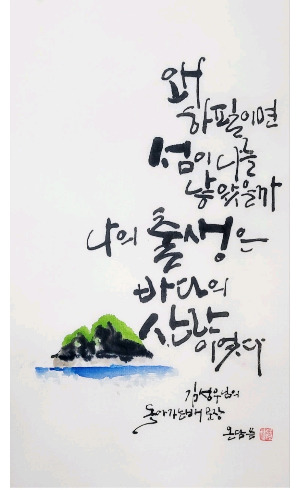 왜
하필이면
섬이 나를
낳았을까
나의 출생은
바다의
산란
이었다
김성우님의
돌아가는배 문장
온담 씀